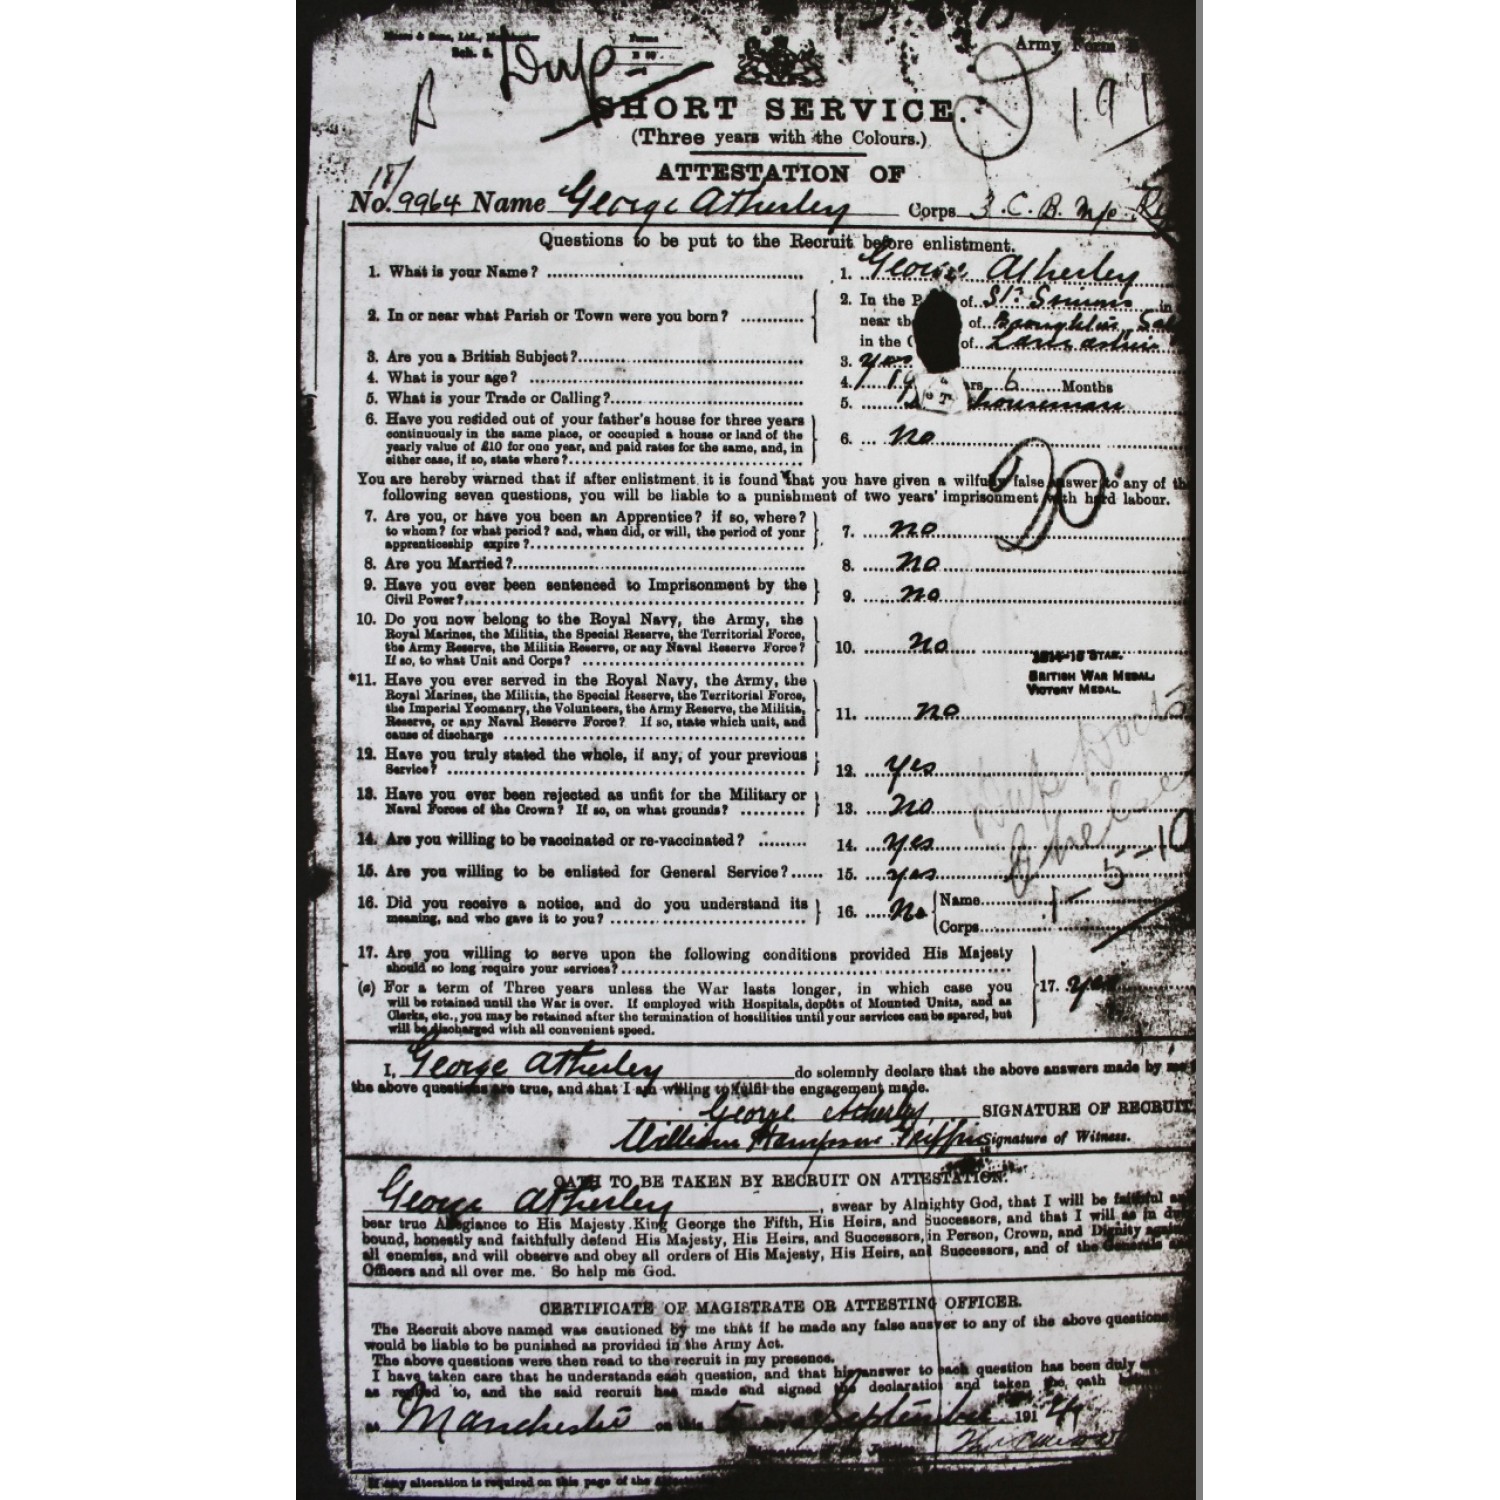 Sch. 5.
Forms
Army Form
Dup
191
SHORT SERVICE.
(Three years with the Colours.)
ATTESTATION OF
18/
No. 9964 Name George Atherley Corps 3.C.B. M/c
Questions to be put to the Recruit before enlistment.
1. What is your Name? 1. George Atherley
2. In or near what Parish or Town were you born? 2. In the of in
near the of Sal
in the of
3. Are you a British Subject? 3. Yes
4. What is your age? 4. 19 6 Months
5. What is your Trade or Calling? 5. houseman
6. Have you resided out of your father's house for three years
continuously in the same place, or occupied a house or land of the
yearly value of £10 for one year, and paid rates for the same, and, in
either case, if so, state where? 6. No
You are hereby warned that if after enlistment it is found that you have given a wilfully false answer to any of the
following seven questions, you will be liable to a punishment of two years' imprisonment with hard labour.
7. Are you, or have you been an Apprentice? if so, where?
to whom? for what period? and, when did, or will, the period of your
apprenticeship expire? 7. No
8. Are you Married? 8. No
9. Have you ever been sentenced to Imprisonment by the
Civil Power? 9. No
10. Do you now belong to the Royal Navy, the Army, the
Royal Marines, the Militia, the Special Reserve, the Territorial Force,
the Army Reserve, the Militia Reserve, or any Naval Reserve Force?
If so, to what Unit and Corps? 10. No
1914-15 STAR.
BRITISH WAR MEDAL
VICTORY MEDAL.
*11. Have you ever served in the Royal Navy, the Army, the
Royal Marines, the Militia, the Special Reserve, the Territorial Force,
the Imperial Yeomanry, the Volunteers, the Army Reserve, the Militia,
Reserve, or any Naval Reserve Force? If so, state which unit, and
cause of discharge 11. No
12. Have you truly stated the whole, if any, of your previous
Service? 12. Yes
13. Have you ever been rejected as unfit for the Military or
Naval Forces of the Crown? If so, on what grounds? 13. No
14. Are you willing to be vaccinated or re-vaccinated? 14. Yes
15. Are you willing to be enlisted for General Service? 15. Yes
16. Did you receive a notice, and do you understand its
meaning, and who gave it to you? 16. No Name
Corps
17. Are you willing to serve upon the following conditions provided His Majesty
should so long require your services?
(a) For a term of Three years unless the War lasts longer, in which case you
will be retained until the War is over. If employed with Hospitals, depôts of Mounted Units, and as
Clerks, etc., you may be retained after the termination of hostilities until your services can be spared, but
will be discharged with all convenient speed. 17. Yes
I, George Atherley do solemnly declare that the above answers made by me to
the above questions are true, and that I am willing to fulfil the engagement made.
George Atherley SIGNATURE OF RECRUIT.
William Hampson Griffin Signature of Witness.
OATH TO BE TAKEN BY RECRUIT ON ATTESTATION.
George Atherley, swear by Almighty God, that I will be faithful and
bear true Allegiance to His Majesty King George the Fifth, His Heirs, and Successors, and that I will as in duty
bound, honestly and faithfully defend His Majesty, His Heirs, and Successors, in Person, Crown, and Dignity against
all enemies, and will observe and obey all orders of His Majesty, His Heirs, and Successors, and of the Generals and
Officers and all over me. So help me God.
CERTIFICATE OF MAGISTRATE OR ATTESTING OFFICER.
The Recruit above named was cautioned by me that if he made any false answer to any of the above questions
would be liable to be punished as provided in the Army Act.
The above questions were then read to the recruit in my presence.
I have taken care that he understands each question, and that his answer to each question has been duly
as replied to, and the said recruit has made and signed the declaration and taken the oath
at Manchester on this 5 September 1914
Signature of the
If any alteration is required on this page of the